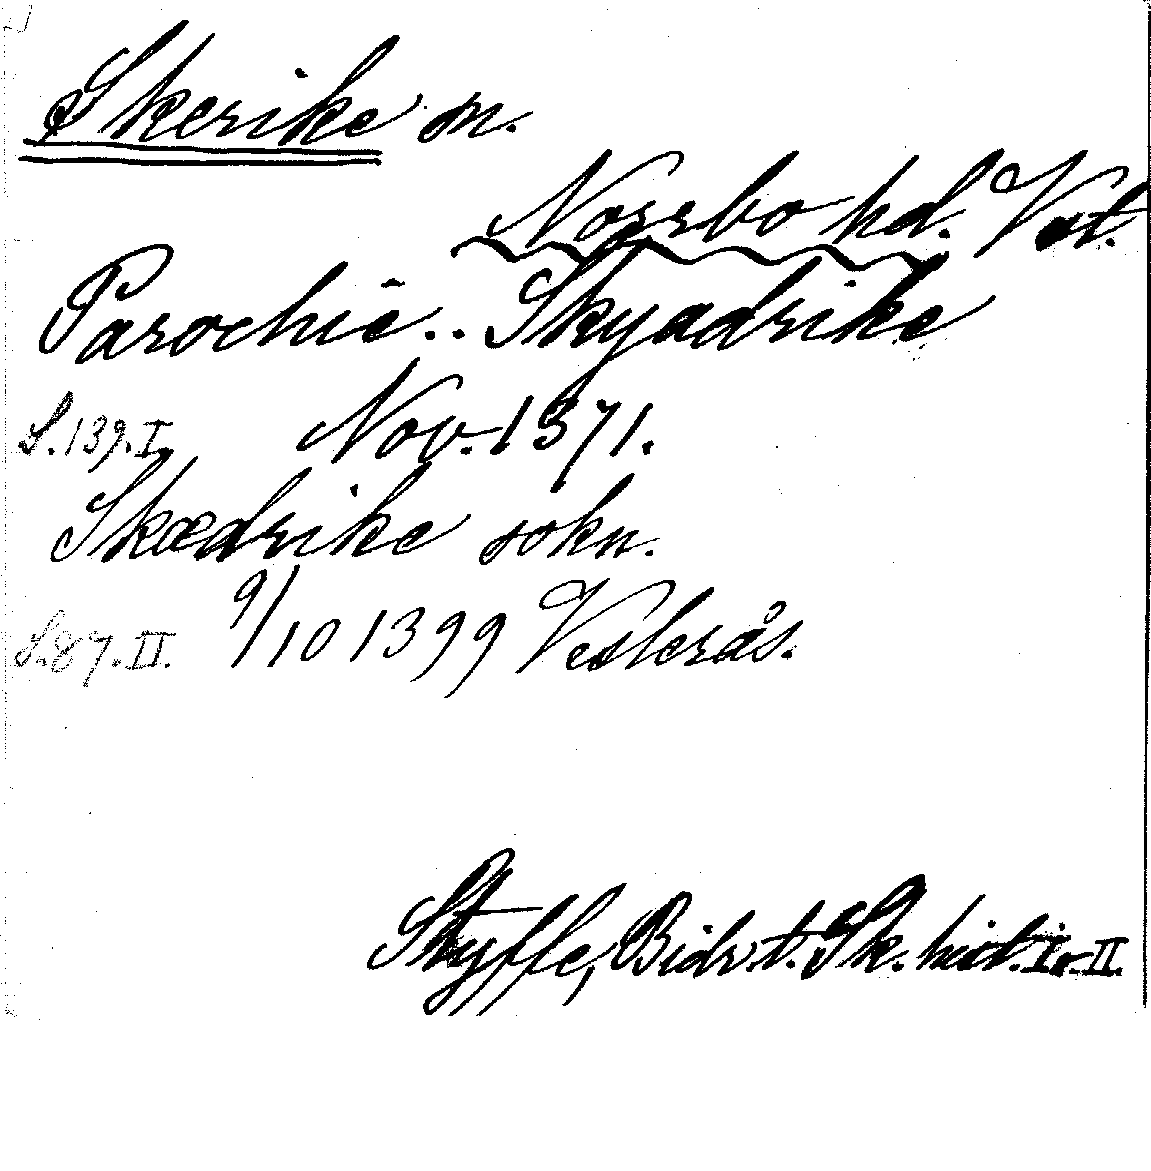 Skerike sn.
Norrbo hd. Vstm.
Parochie.. Skyadrike
S. 139. I. Nov. 1371.
Skædrike sokn.
S. 87. II. 9/10 1399 Vesterås.
Styffe, Bidr. t. Sk. hist. I o. II.